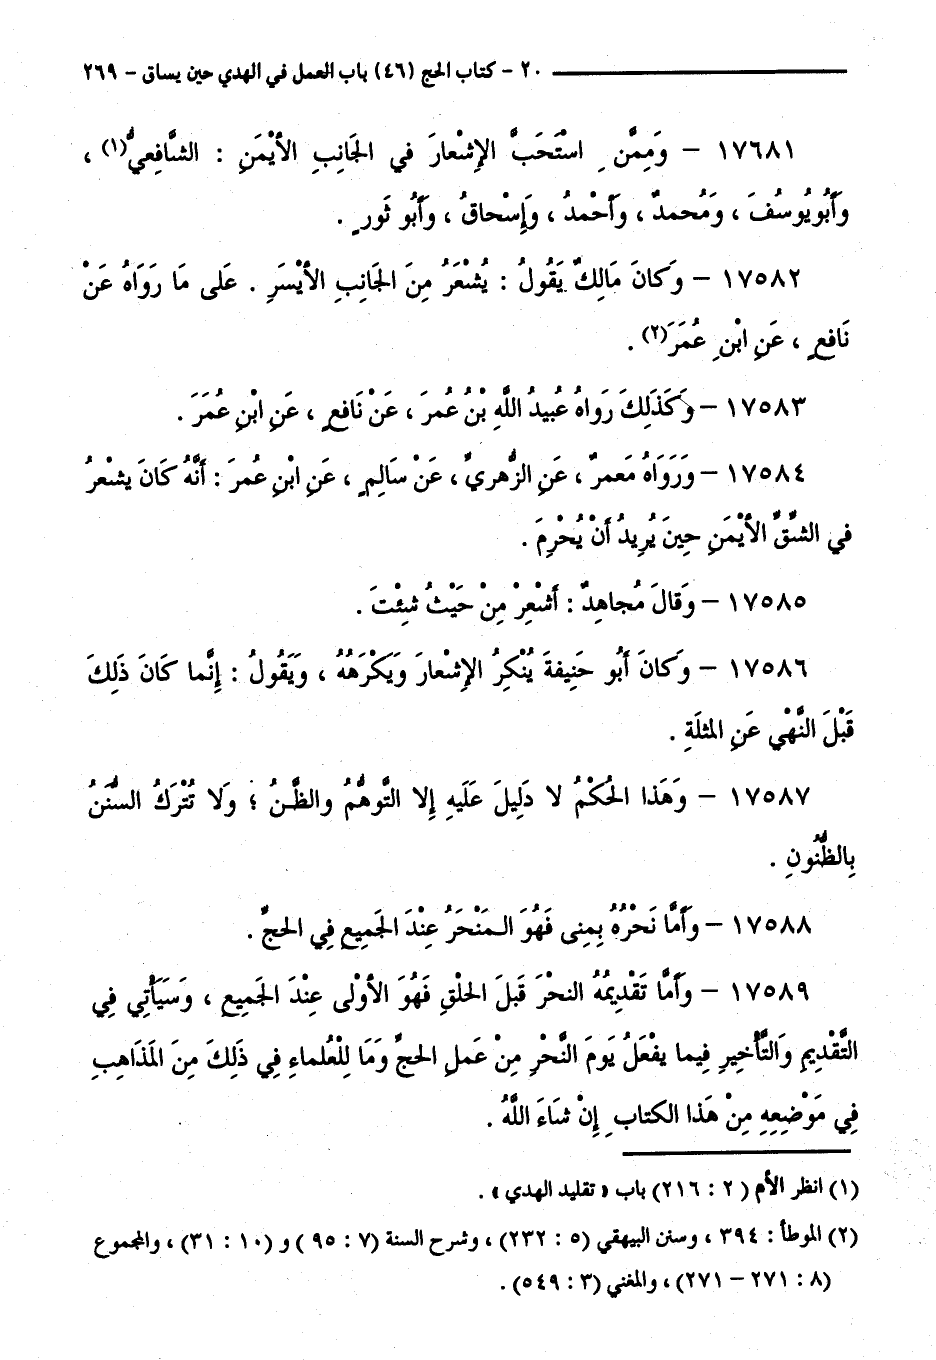 ٢٠ - كتاب الحج (٤٦) باب العمل في الهدي حين يساق - ٢٦٩
١٧٦٨١ - وَمِمَّنِ اسْتَحَبَّ الإِشْعارَ في الجَانِبِ الأَيْمَنِ : الشَّافِعيُّ(١) ،
وَأَبُو يُوسُفَ ، وَمُحمدٌ ، وَأَحْمدُ ، وَإِسْحاقُ ، وَأَبُو ثَورٍ .
١٧٥٨٢ - وَكانَ مَالِكٌ يَقُولُ : يُشْعَرُ مِنَ الجَانِبِ الأَيْسَرِ . عَلى مَا رَوَاهُ عَنْ
نَافِعٍ ، عَنِ ابْنِ عُمَرَ(٢) .
١٧٥٨٣ - وَكَذَلِكَ رَواهُ عُبيدُ اللَّهِ بْنُ عُمرَ ، عَنْ نَافِعٍ ، عَنِ ابْنِ عُمَرَ .
١٧٥٨٤ - وَرَوَاهُ مَعمرٌ ، عَنِ الزُّهريِّ ، عَنْ سَالِمٍ ، عَنِ ابْنِ عُمرَ : أَنَّهُ كَانَ يشْعرُ
في الشقِّ الأَيْمَنِ حِينَ يُرِيدُ أَنْ يُحْرِمَ .
١٧٥٨٥ - وَقالَ مُجاهِدٌ : أَشْعِرْ مِنْ حَيْثُ شِئْتَ .
١٧٥٨٦ - وَكانَ أَبُو حَنِيفةَ يُنْكِرُ الإِشْعارَ وَيَكْرَهُهُ ، وَيَقُولُ : إِنَّما كَانَ ذَلِكَ
قَبْلَ النَّهْي عَنِ المثلَةِ .
١٧٥٨٧ - وَهَذا الحُكْمُ لا دَلِيلَ عَلَيهِ إِلا التَّوهُّمُ والظَّنُ ؛ وَلا تُتْرَكُ السُّنَنُ
بِالظُّنُونِ .
١٧٥٨٨ - وَأَمَّا نَحْرُهُ بِمِنى فَهُوَ المَنْحَرُ عِنْدَ الجَمِيعِ فِي الحجِّ .
١٧٥٨٩ - وَأَمَّا تَقْدِيمُهُ النحْرَ قَبلَ الحلْقِ فَهُوَ الأَوْلى عِنْدَ الجَمِيعِ ، وَسَيَأْتِي فِي
التَّقْدِيمِ وَالتَّأْخِيرِ فِيما يفْعَلُ يَومَ النَّحْرِ مِنْ عَملِ الحجِّ وَمَا لِلْعُلماءِ فِي ذَلِكَ مِنَ المَذَاهِبِ
فِي مَوْضِعِهِ مِنْ هَذا الكتابِ إِنْ شاءَ اللَّهُ .
(١) انظر الأم (٢ : ٢١٦) باب « تقليد الهدي » .
(٢) الموطأ : ٣٩٤ ، وسنن البيهقي (٥ : ٢٣٢) ، وشرح السنة (٧ : ٩٥) و (١٠ : ٣١) ، والمجموع
(٨ : ٢٧١ - ٢٧١) ، والمغني (٣ : ٥٤٩) .